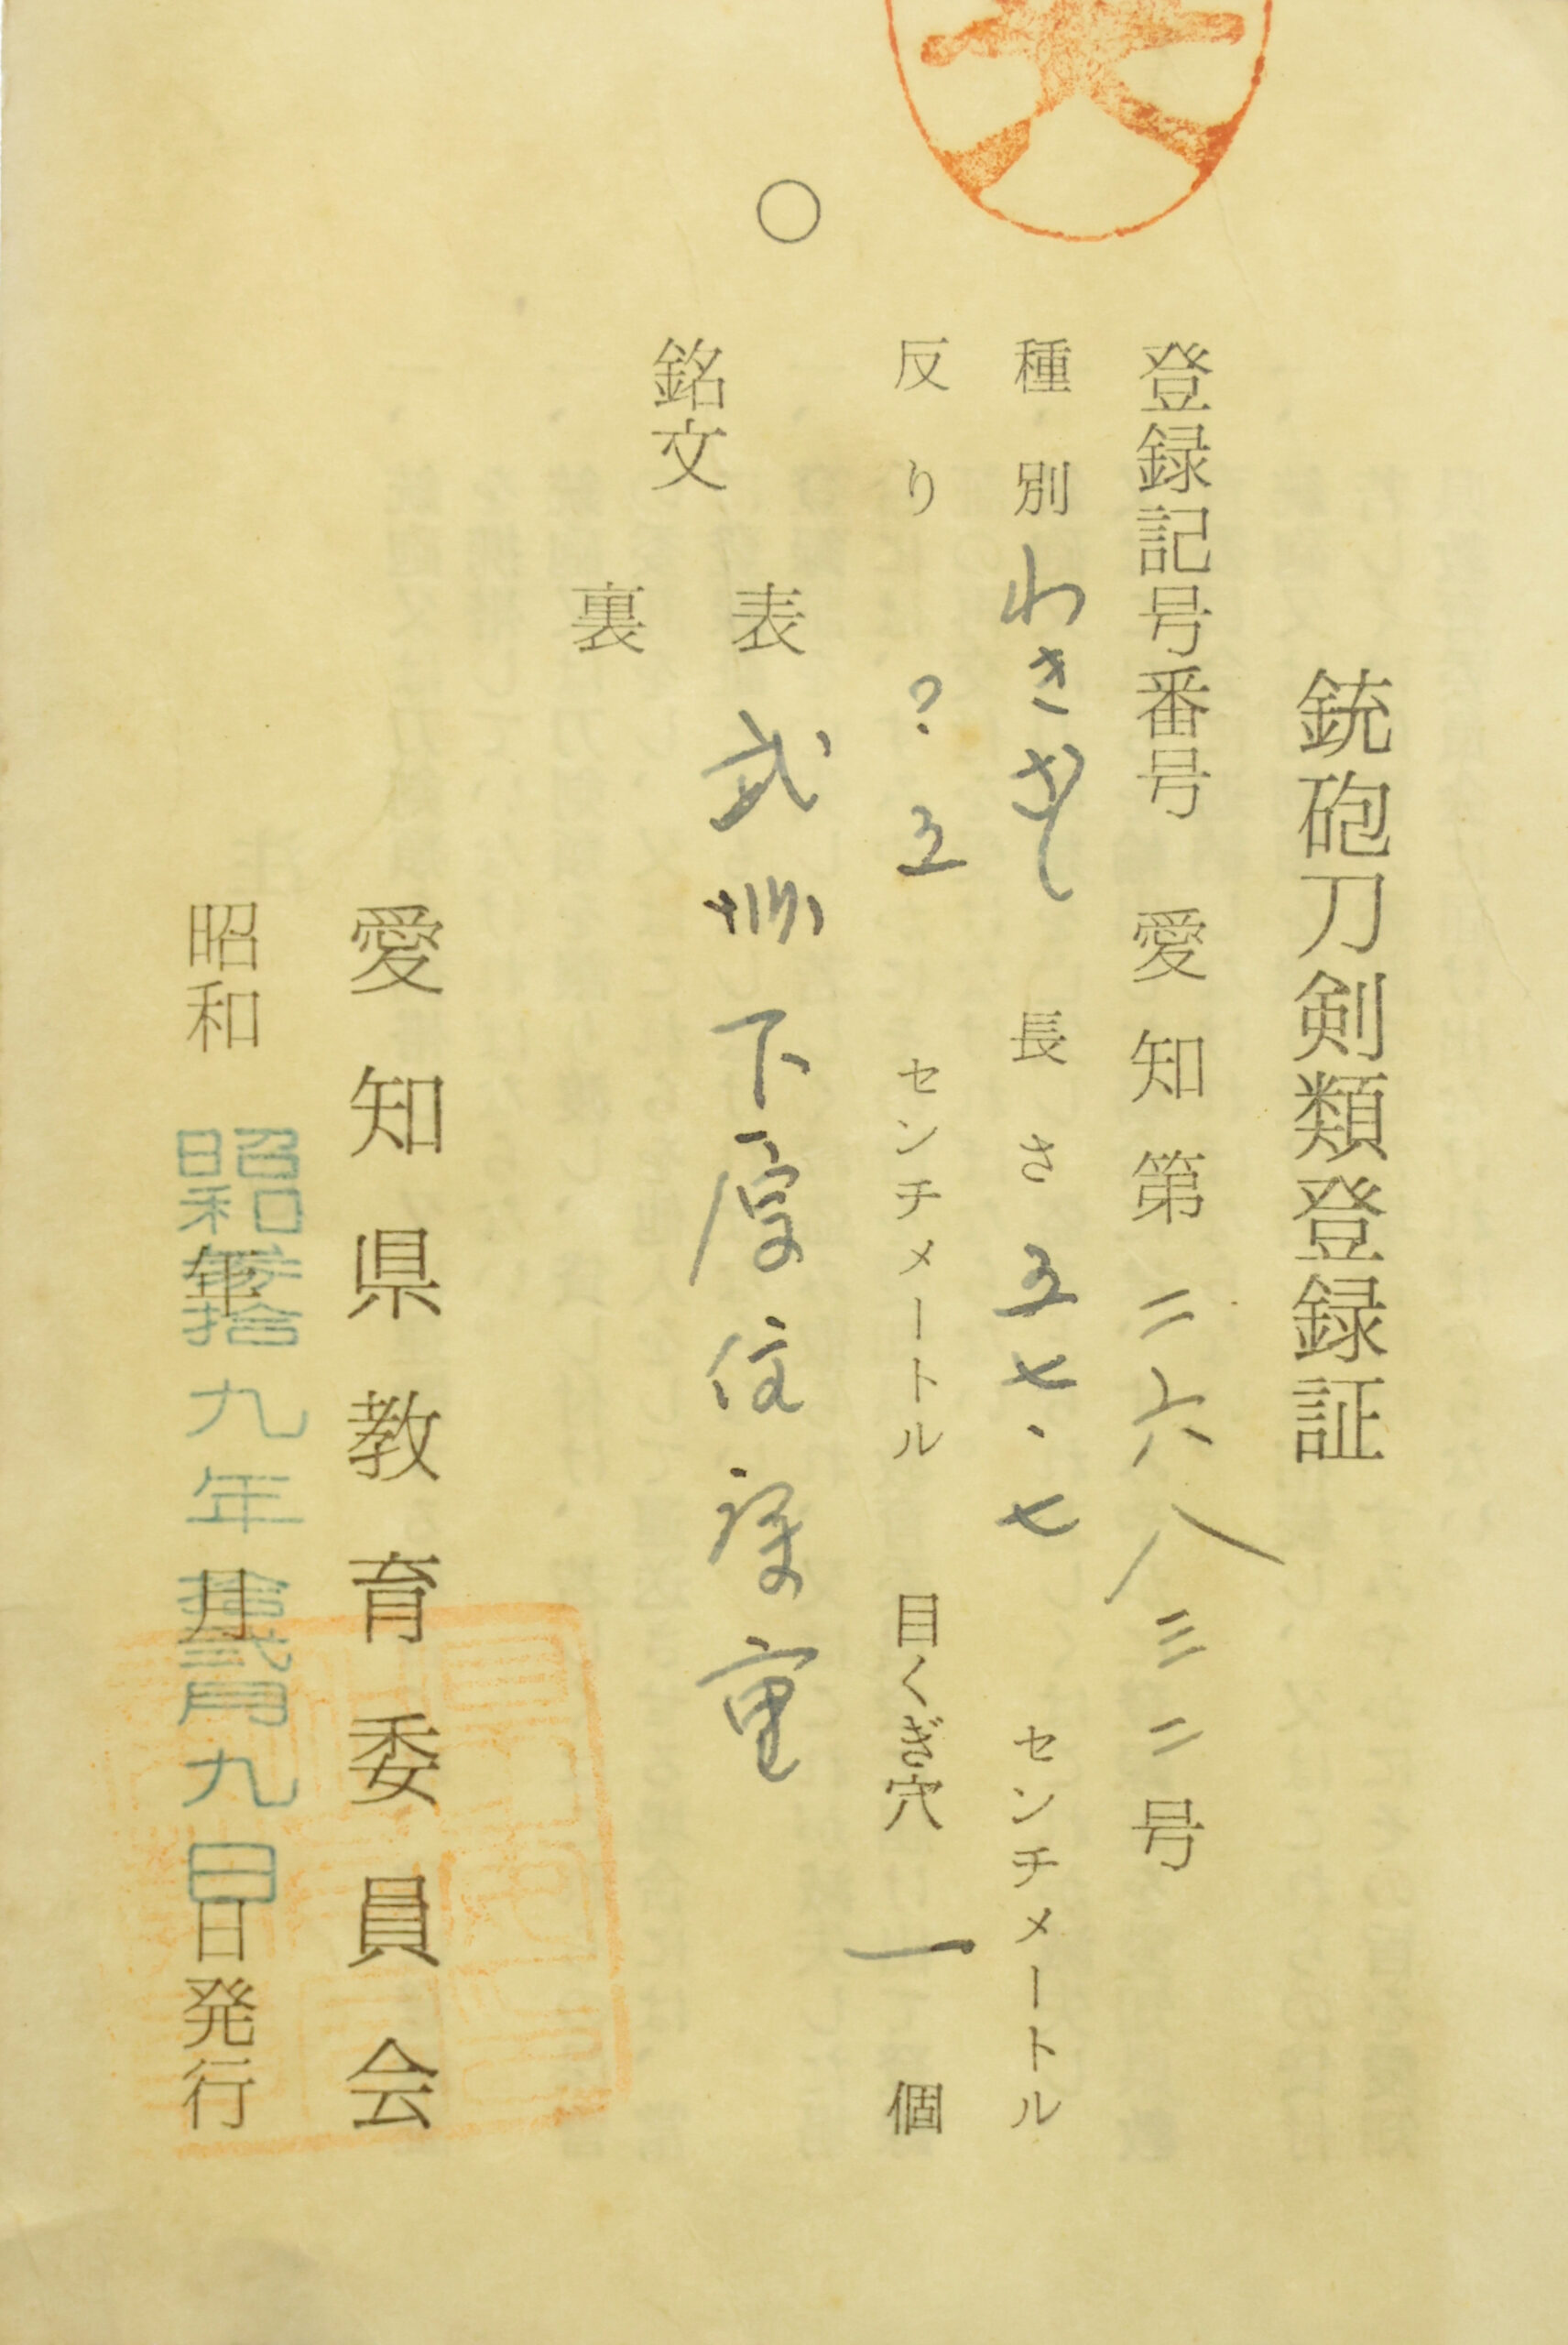 銃砲刀剣類登録証
登録記号番号 愛知第二六八三二号
種別 わきざし 長さ 五七・七 センチメートル
反り ? 五 センチメートル 目くぎ穴 一 個
○
銘文
表 武州下原住康重
裏
愛知県教育委員会
昭和 年 月 日発行
昭和参拾九年拾弐月九日